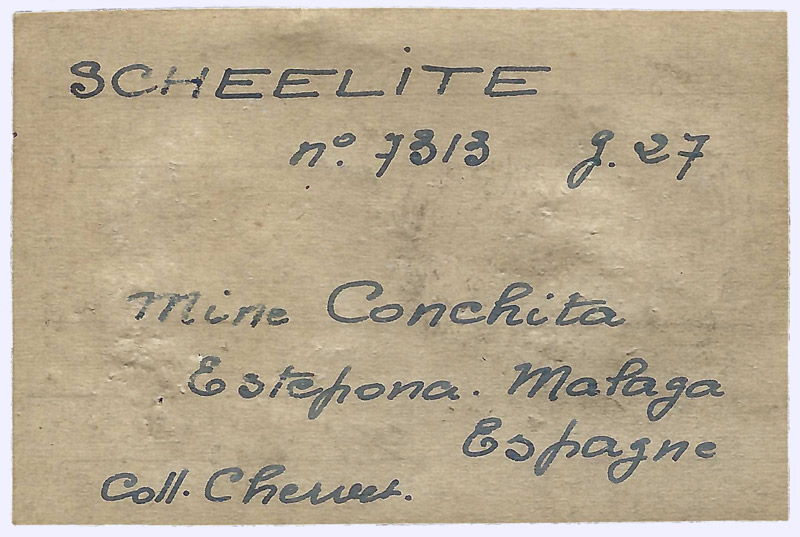 SCHEELITE
n°. 7313 g. 27
Mine Conchita
Estepona. Malaga
Espagne
Coll. Chervet.